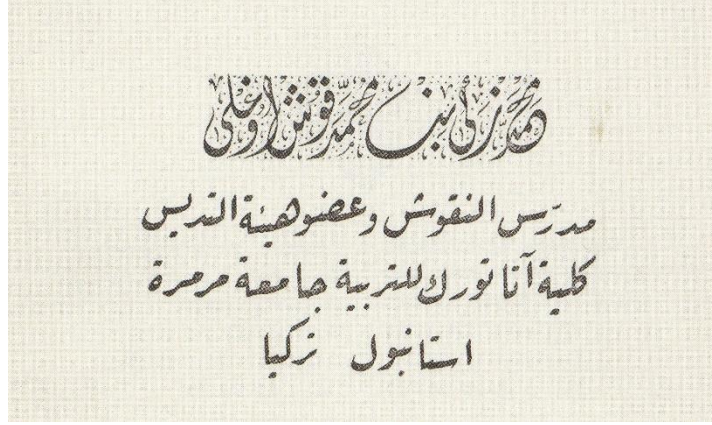 محمد زكي بن محمد قوش اوغلى
مدرّس النقوش وعضو هيئة التدريس
كلية آتاتورك للتربية جامعة مرمرة
استانبول تركيا